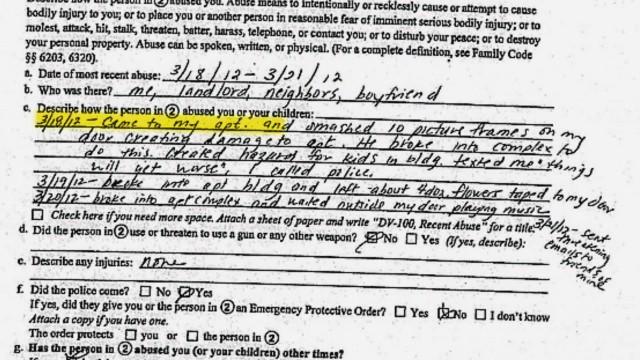 Describe how the person in ② abused you. Abuse means to intentionally or recklessly cause or attempt to cause
bodily injury to you; or to place you or another person in reasonable fear of imminent serious bodily injury; or to
molest, attack, hit, stalk, threaten, batter, harass, telephone, or contact you; or to disturb your peace; or to destroy
your personal property. Abuse can be spoken, written, or physical. (For a complete definition, see Family Code
§§ 6203, 6320).
a. Date of most recent abuse: 3/18/12 - 3/21/12
b. Who was there? me, landlord, neighbors, boyfriend
c. Describe how the person in ② abused you or your children:
3/18/12 - Came to my apt. and smashed 10 picture frames on my
door creating damage to apt. He broke into complex to
do this. Created hazards for kids in bldg. texted me "things
will get worse", I called police.
3/19/12 - broke into apt bldg and left about flowers taped to my door
3/20/12 - broke into apt complex and waited outside my door playing music
3/21/12 - sent
threatening
emails to
friends of
mine
☐ Check here if you need more space. Attach a sheet of paper and write "DV-100, Recent Abuse" for a title.
d. Did the person in ② use or threaten to use a gun or any other weapon? ☑ No ☐ Yes (If yes, describe):
e. Describe any injuries: none
f. Did the police come? ☐ No ☑ Yes
If yes, did they give you or the person in ② an Emergency Protective Order? ☐ Yes ☑ No ☐ I don't know
Attach a copy if you have one.
The order protects ☐ you or ☐ the person in ②
g. Has the person in ② abused you (or your children) other times?